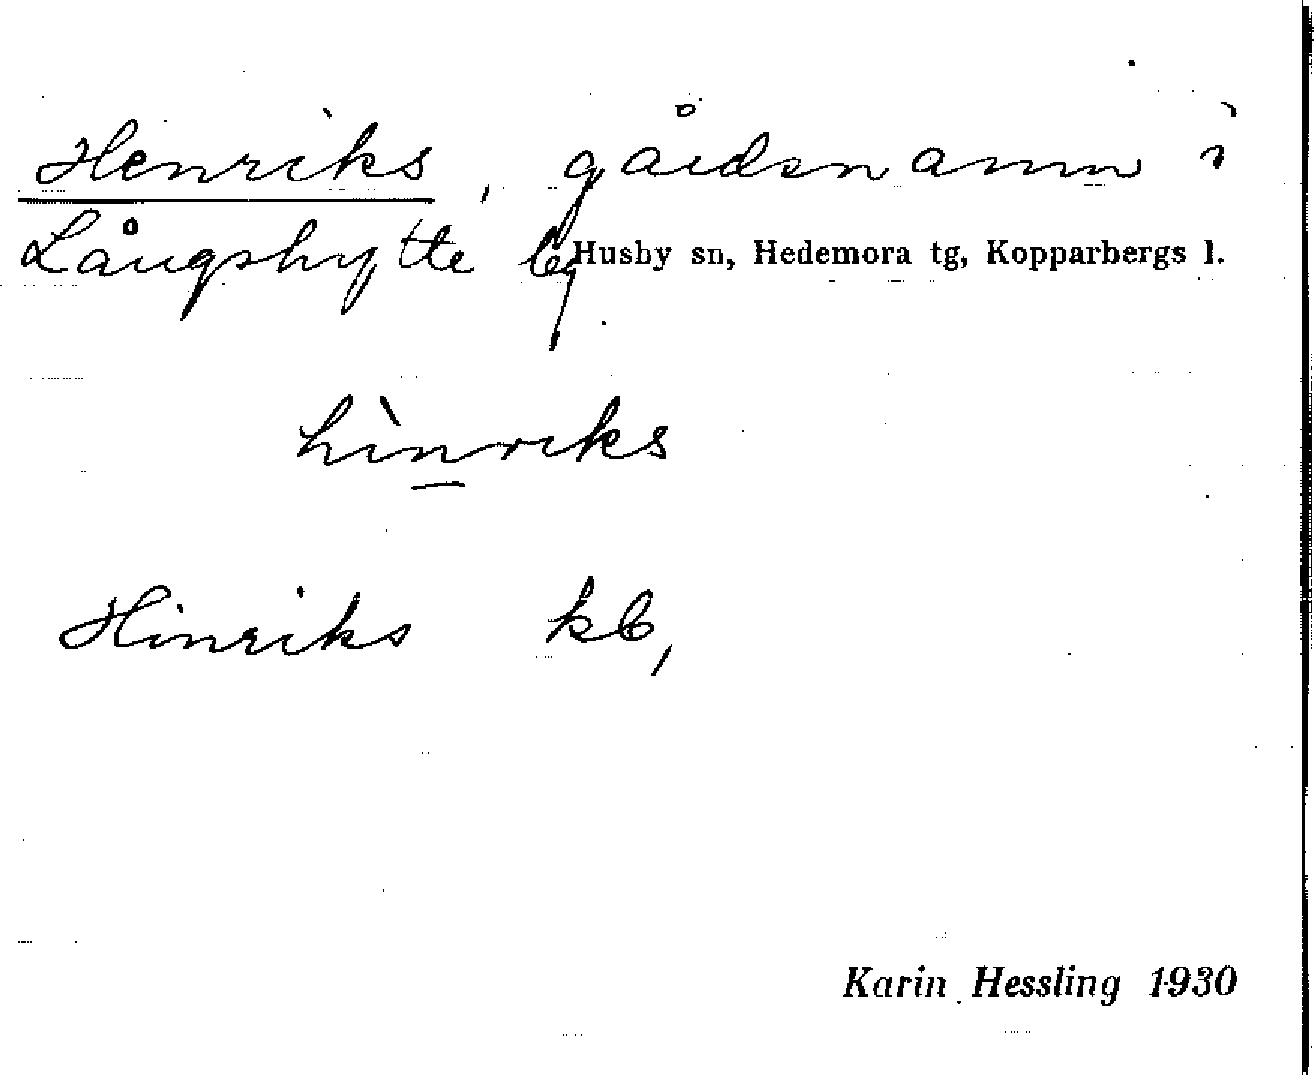 Henriks, gårdsnamn i
Långshytte by Husby sn, Hedemora tg, Kopparbergs l.
hìnriks
Hinriks kb,
Karin Hessling 1930